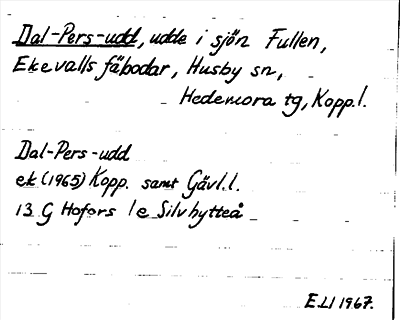 Dal-Pers-udd, udde i sjön Fullen,
Ekevalls fäbodar, Husby sn,
Hedemora tg, Kopp.l.
Dal-Pers-udd
ek (1965) Kopp. samt Gävl.l.
13 G Hofors 1e Silvhytteå
E.LI 1967.